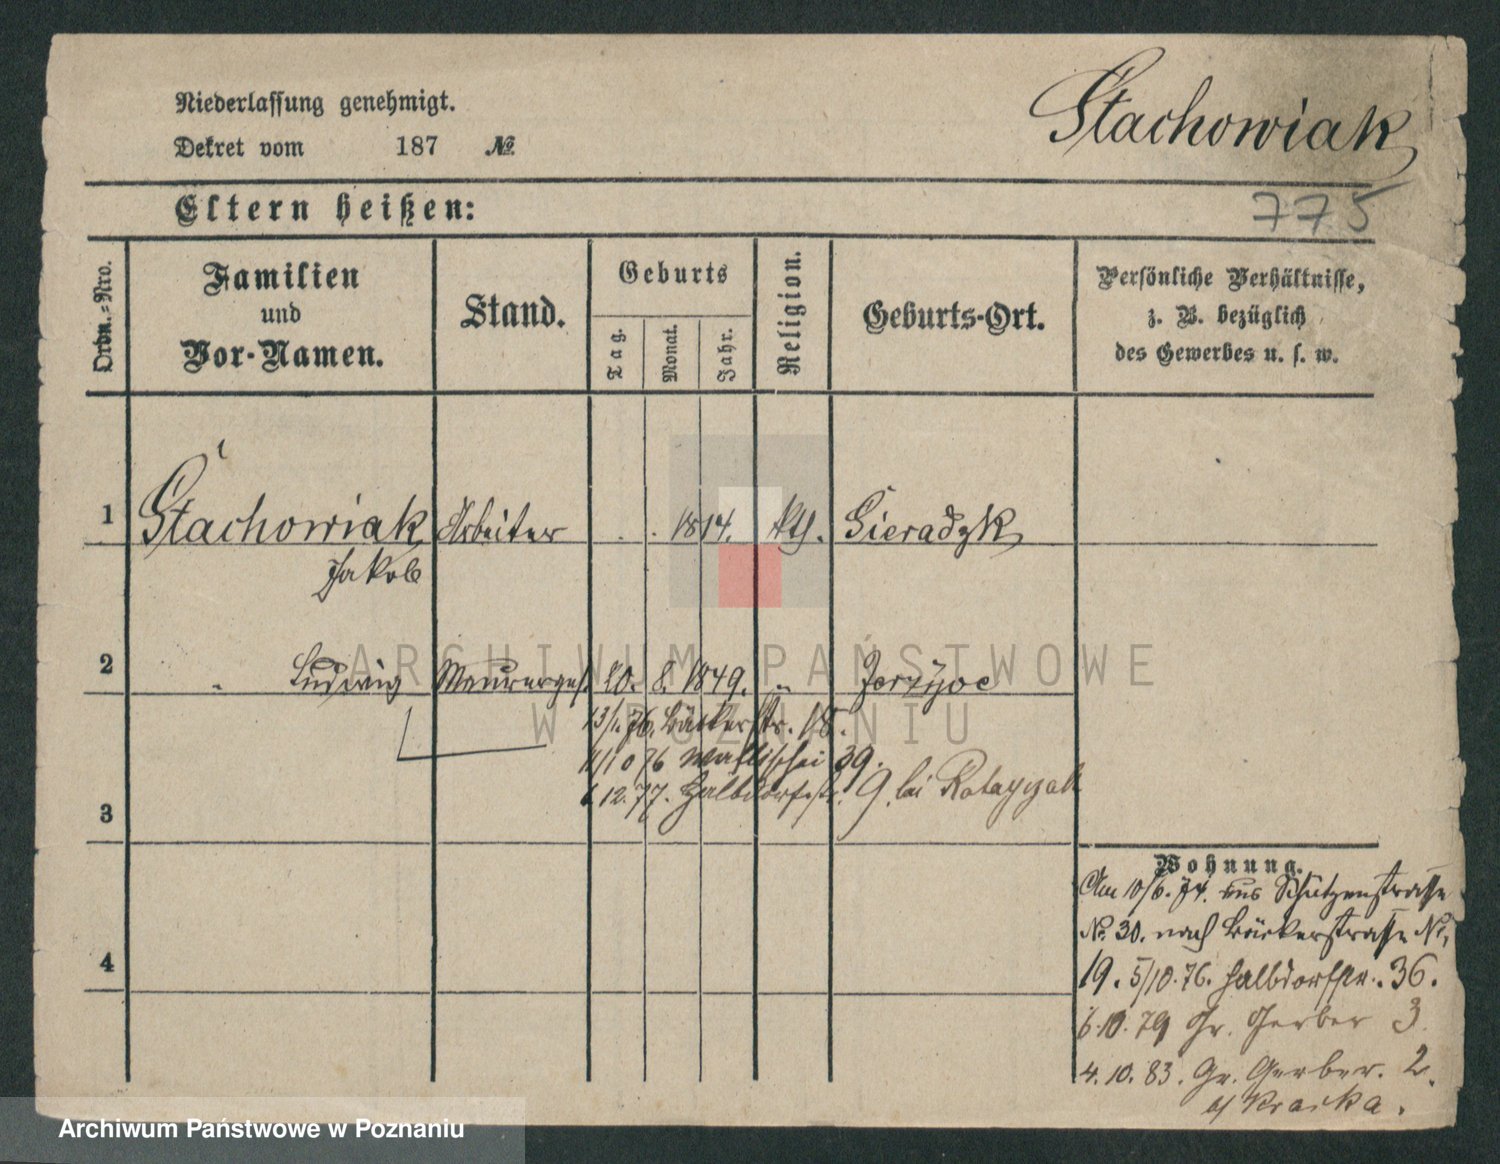 Niederlassung genehmigt.
Dekret vom 187 №
Stachowiak
775
Eltern heißen:
Ordn.-Nro.
Familien
und
Vor-Namen.
Stand.
Geburts
Tag.
Monat.
Jahr.
Religion.
Geburts-Ort.
Persönliche Verhältnisse,
z. B. bezüglich
des Gewerbes u. s. w.
1 Stachowiak Arbeiter . . 1814. kth. Sieradzk
Jakob
2 " Ludwig Maurerges. 20. 8. 1849. " Jerzyce
13/1. 76. Bäckerstr. 18.
11/10 76 Wallischei 39.
6.12.77. Halbdorfstr. 9. bei Ratayczak
3
Wohnung.
Am 10/6. 74. aus Schützenstrasse
No. 30. nach Bäckerstrasse No.
19. 5/10. 76. Halbdorfstr. 36.
6.10.79 Gr. Gerber 3.
4.10.83. Gr. Gerber. 2.
b/ Kraska.
4
ARCHIWUM PAŃSTWOWE
W POZNANIU
Archiwum Państwowe w Poznaniu